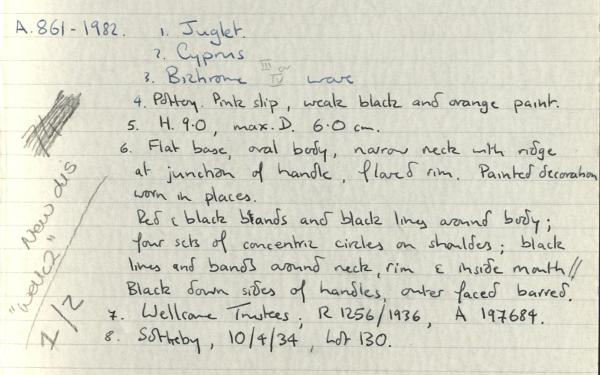 A.861-1982. 1. Juglet.
2. Cyprus
3. Bichrome III or IV ware
4. Pottery. Pink slip, weak black and orange paint.
5. H. 9.0, max. D. 6.0 cm.
6. Flat base, oval body, narrow neck with ridge
at junction of handle, flared rim. Painted decoration
worn in places.
Red & black bands and black lines around body;
four sets of concentric circles on shoulder; black
lines and bands around neck, rim & inside mouth//
Black down sides of handles, outer faced barred.
7. Wellcome Trustees; R 1256/1936, A 197684.
8. Sotheby, 10/4/34, Lot 130.
New dis
"Wellc2"
1/2